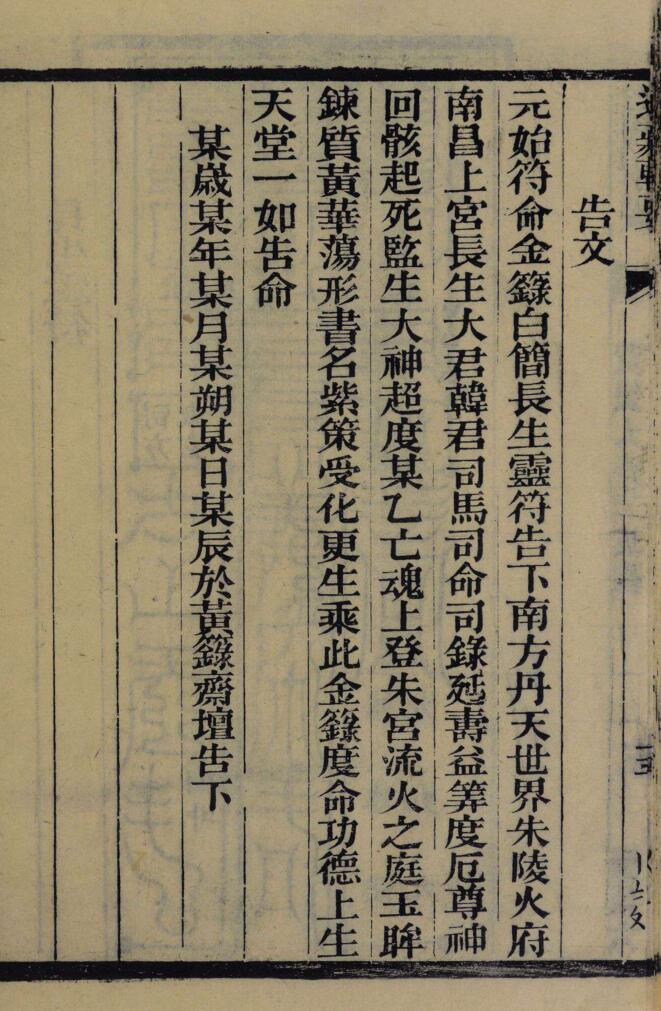 告文
元始符命金籙白簡長生靈符告下南方丹天世界朱陵火府
南昌上宮長生大君韓君司馬司命司錄延壽益筭度厄尊神
回骸起死監生大神超度某乙亡魂上登朱宮流火之庭玉眸
鍊質黃華蕩形書名紫策受化更生乘此金籙度命功德上生
天堂一如告命
某歲某年某月某朔某日某辰於黃籙齋壇告下